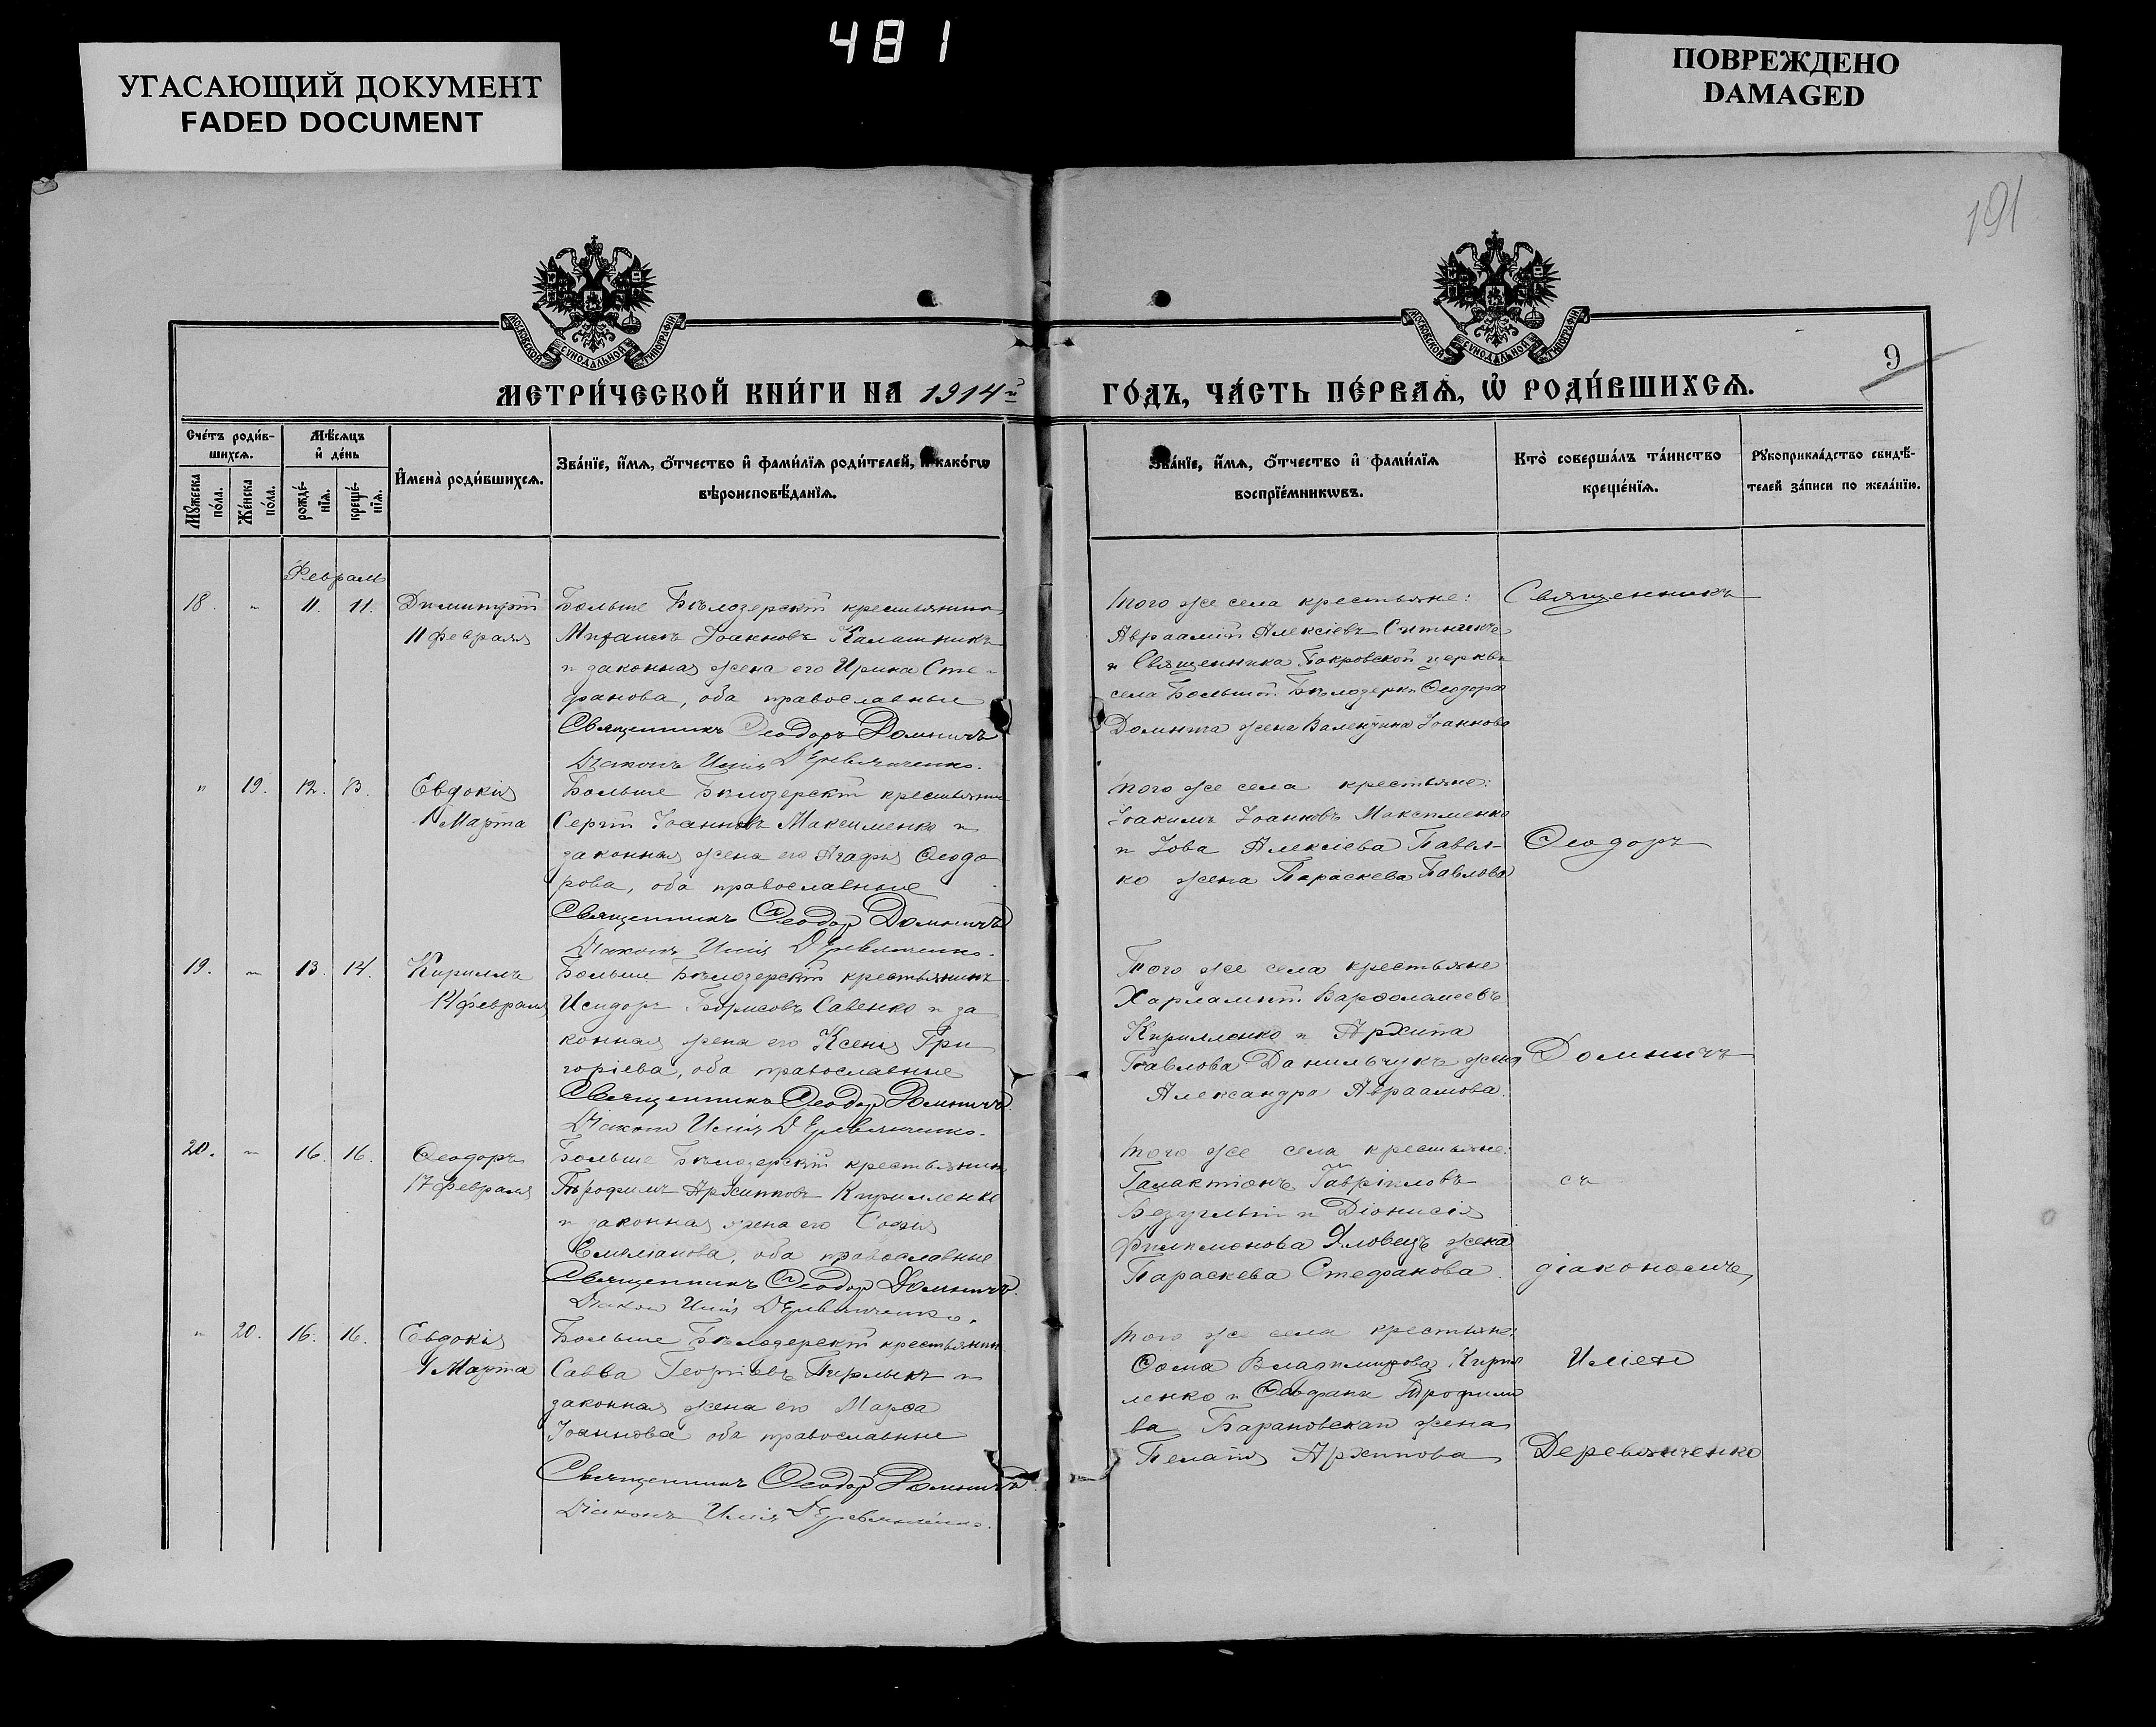 481
УГАСАЮЩИЙ ДОКУМЕНТ
FADED DOCUMENT
ПОВРЕЖДЕНО
DAMAGED
191
МОСКОВСКОЙ СѴНОДАЛЬНОЙ ТИПОГРАФІИ
МОСКОВСКОЙ СѴНОДАЛЬНОЙ ТИПОГРАФІИ
9
МЕТРИ́ЧЕСКОЙ КНИ́ГИ НА 1914й
ГО́ДЪ, ЧА́СТЬ ПЕ́РВАѦ, Ѡ РОДИ́ВШИХСѦ.
Сче́тъ роди́в-
шихсѧ.
Мꙋ́жеска по́ла.
Же́нска по́ла.
Мѣ́сѧцъ
и҆ де́нь
рожде́-нїѧ.
креще́-нїѧ.
И҆мена̀ роди́вшихсѧ.
Зва́нїе, и҆́мѧ, ѻ҆́тчество и҆ фами́лїѧ роди́телей, и҆ како́гѡ
вѣроисповѣ́данїѧ.
Зва́нїе, и҆́мѧ, ѻ҆́тчество и҆ фами́лїѧ
воспрїе́мникѡвъ.
Кто̀ соверша́лъ та́инство
креще́нїѧ.
Рꙋкоприкла́дство свидѣ́-
телей за́писи по жела́нїю.
Февраль
18. " 11. 11. Димитрій
11 февраля
Больше Бѣлозерскій крестьянинъ
Михаилъ Іоанновъ Калашникъ
и законная жена его Ирина Сте-
фанова, оба православные
Священникъ Ѳеодоръ Домничъ
Діаконъ Илія Деревянченко.
того же села крестьяне:
Авраамій Алексіевъ Сытникъ
и Священника Покровской церкви
села Большой Бѣлозерки Ѳеодора
Домнича жена Валентина Іоаннова
Священникъ
" 19. 12. 13. Евдокія
1 Марта
Больше Бѣлозерскій крестьянинъ
Сергій Іоанновъ Максименко и
законная жена его Агафія Ѳеодо
рова, оба православные
Священникъ Ѳеодор Домничъ
Діаконъ Илія Деревянченко.
того же села крестьяне:
Іоакимъ Іоанновъ Максименко
и Іова Алексіева Павел-
ко жена Параскева Павлова
Ѳеодоръ
19. " 13. 14. Кириллъ
14 февраля
Больше Бѣлозерскій крестьянинъ
Исидоръ Борисовъ Савенко и за
конная жена его Ксенія Гри
горіева, оба православные
Священникъ Ѳеодор Домничъ
Діаконъ Илія Деревянченко.
Того же села крестьяне
Харлампій Варѳоломеевъ
Кирилленко и Архипа
Павлова Данильчукъ жена
Александра Авраамова.
Домничъ
20. " 16. 16. Ѳеодоръ
17 февраля
Больше Бѣлозерскій крестьянинъ
Трофимъ Архиповъ Кирилленко
и законная жена его Софія
Емеліанова, оба православные
Священникъ Ѳеодор Домничъ
Діаконъ Илія Деревянченко.
того же села крестьяне:
Галактіонъ Гавріиловъ
Безуглый и Діонисія
Филимонова Яловецъ жена
Параскева Стефанова.
съ
діакономъ
" 20. 16. 16. Евдокія
1 Марта
Больше Бѣлозерскій крестьянинъ
Савва Георгіевъ
законная жена его Марѳа
Іоаннова оба православные
Священникъ Ѳеодор Домничъ
Діаконъ Илія Деревянченко.
того же села крестьяне:
Ѳома Владимировъ Кирил
ленко и Трофимо
ва Барановскаго жена
Пелагія Архипова
Иліею
Деревянченко